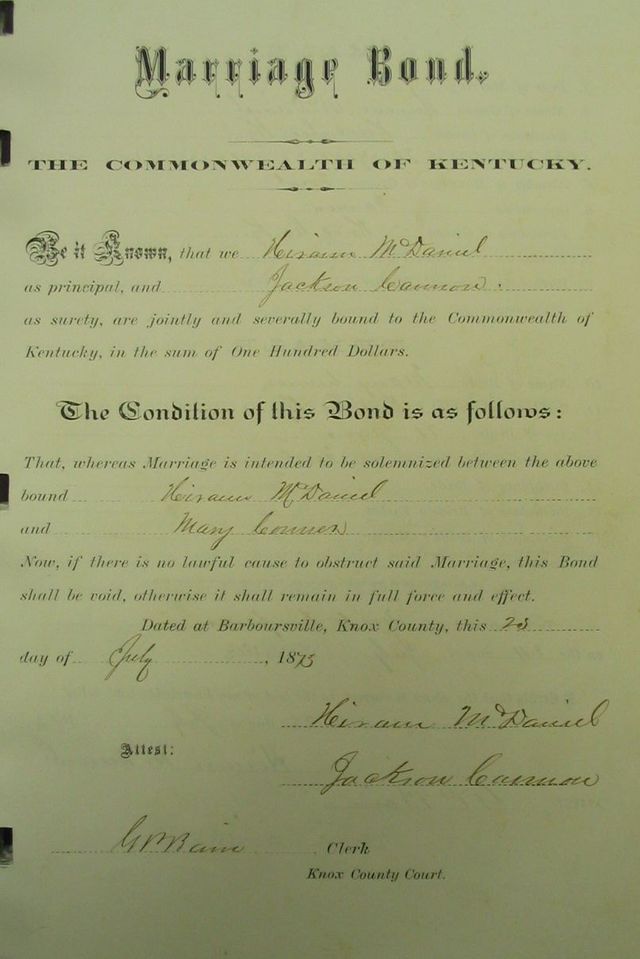 Marriage Bond.
THE COMMONWEALTH OF KENTUCKY.
Be it Known, that we Hiram McDaniel
as principal, and Jackson Cannon.
as surety, are jointly and severally bound to the Commonwealth of
Kentucky, in the sum of One Hundred Dollars.
The Condition of this Bond is as follows:
That, whereas Marriage is intended to be solemnized between the above
bound Hiram McDaniel
and Mary
Now, if there is no lawful cause to obstruct said Marriage, this Bond
shall be void, otherwise it shall remain in full force and effect.
Dated at Barboursville, Knox County, this 23
day of July, 1873
Hiram McDaniel
Attest:
Jackson Cannon
Clerk
Knox County Court.